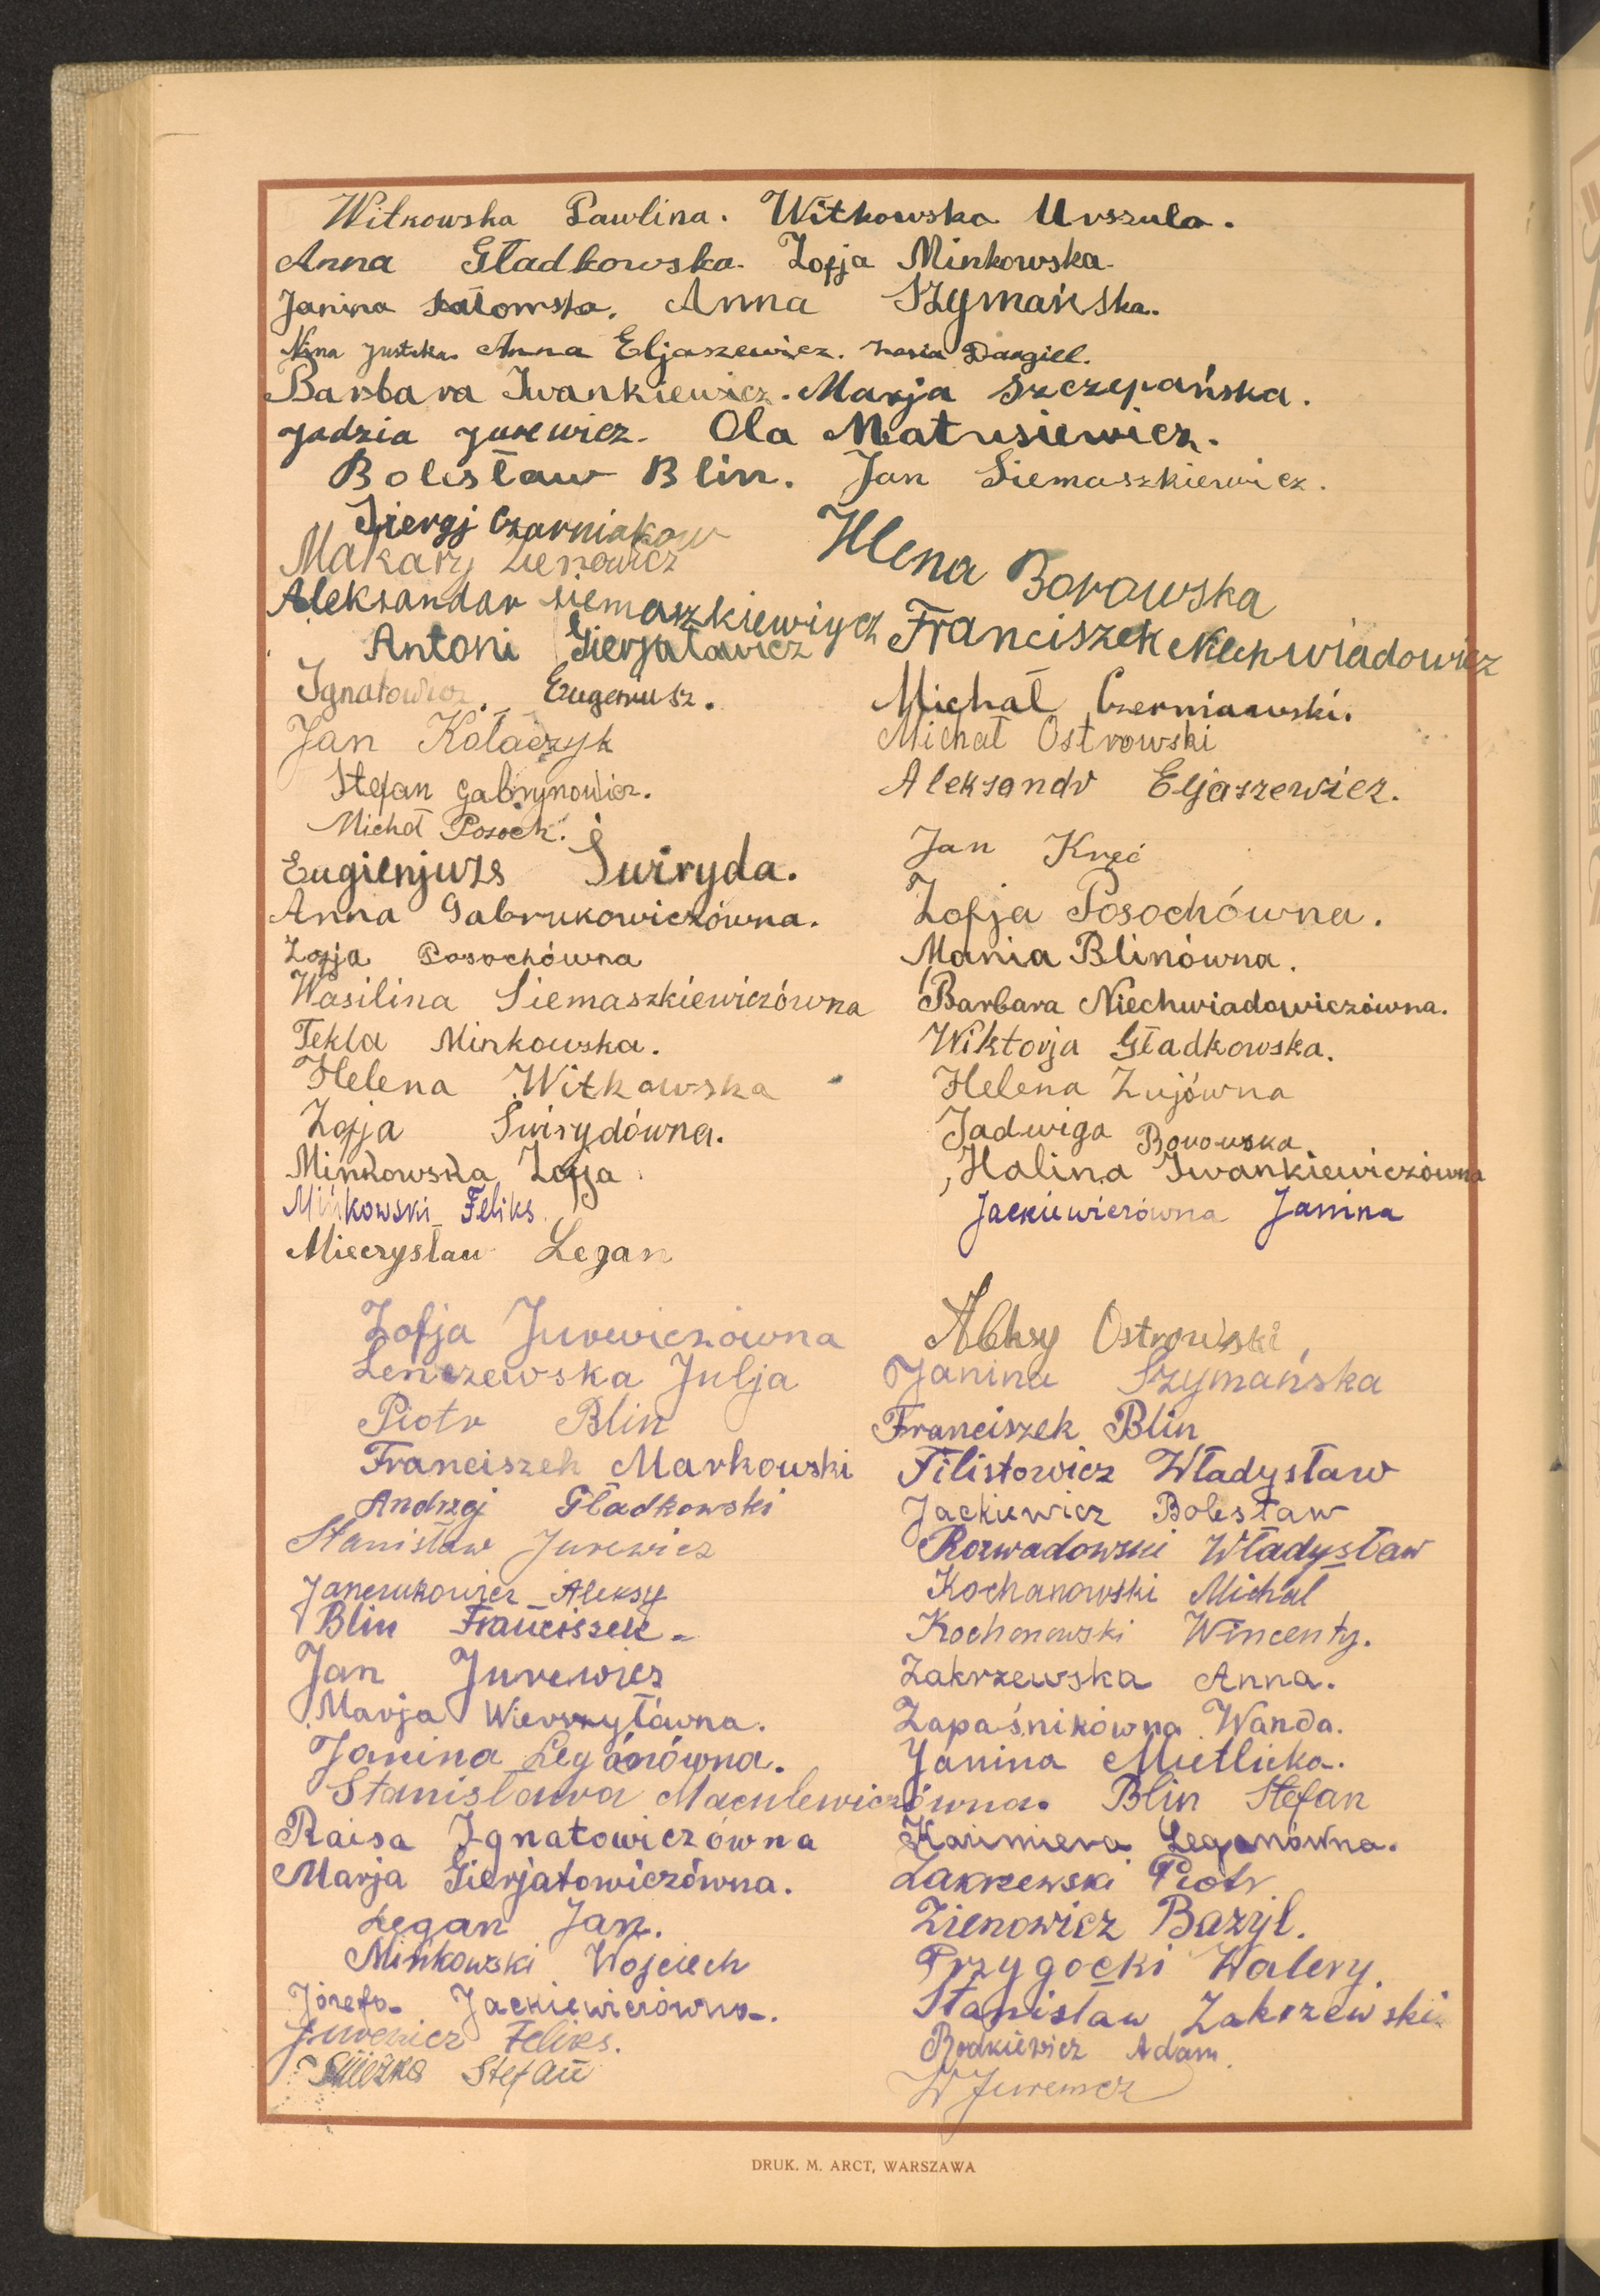 Witkowska Pawlina. Witkowska Urszula.
Anna Gładkowska. Zofja Minkowska.
Janina Anna Szymańska.
Nina Anna Eljaszewicz. Dangiel.
Barbara Iwankiewicz. Marja Szczepańska.
Jadzia Jurewicz. Ola Matusiewicz.
Bolesław Blin. Jan Siemaszkiewicz.
Siergj Czarniakow
Makary Zienowicz
Helena Borowska
Aleksandar Siemaszkiewiycz
Franciszek Niechwiadowicz
Antoni Gierjatowicz
Ignatowicz. Eugeniusz.
Michał Czerniawski.
Jan Kołaczyk
Michał Ostrowski
Stefan Gabrynowicz.
Aleksandr Eljaszewicz.
Michał Posoch.
Jan Kręć
Eugienjuzs Świryda.
Anna Gabrukowiczówna.
Zofja Posochówna.
Zofja Posochówna
Mania Blinówna.
Wasilina Siemaszkiewiczówna
Barbara Niechwiadowiczówna.
Tekla Minkowska.
Wiktorja Gładkowska.
Helena Witkowska
Helena Zujówna
Zofja Świrydówna.
Jadwiga Borowska
Minkowska Zofja
Halina Iwankiewiczówna
Mińkowski Feliks
Jackiewiczówna Janina
Mieczysław Legan
Zofja Jurewiczówna
Aleksy Ostrowski
Lenczewska Julja
Janina Szymańska
Piotr Blin
Franciszek Blin
Franciszek Markowski
Filistowicz Władysław
Andrzej Gładkowski
Jackiewicz Bolesław
Stanisław Jurewicz
Rozwadowski Władysław
Janczukowicz Aleksy
Kochanowski Michał
Blin Franciszek
Kochanowski Wincenty.
Jan Jurewicz
Zakrzewska Anna.
Marja Wierszyłówna.
Zapaśnikówna Wanda.
Janina Legánówna.
Janina Mietlicka.
Stanisława Maculewiczówna. Blin Stefan
Raisa Ignatowiczówna
Kazimiera Leganówna.
Marja Gierjatowiczówna.
Zakrzewski Piotr
Legan Jan.
Zienowicz Bazyl.
Mińkowski Wojciech
Przygocki Walery.
Józefa Jackiewiczówna.
Stanisław Zakrzewski
Jurewicz Feliks.
Rodkiewicz Adam.
Stefan
W Jurewicz
DRUK. M. ARCT, WARSZAWA